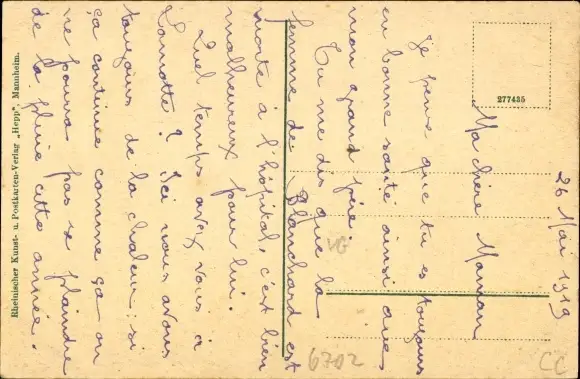 26 Mai 1919
Ma chère Maman
Je pense que tu es toujours
en bonne santé ainsi que
mon grand père.
Tu me dis que la
femme de Blanchard est
morte à l'hôpital, c'est bien
malheureux pour lui.
Quel temps avez vous à
Lamotte? Ici nous avons
toujours de la chaleur; si
ça continue comme ça on
ne pourra pas se plaindre
de la pluie cette année.
Rheinischer Kunst- u. Postkarten-Verlag „Hepp", Mannheim.
277435
VG
6702
CC